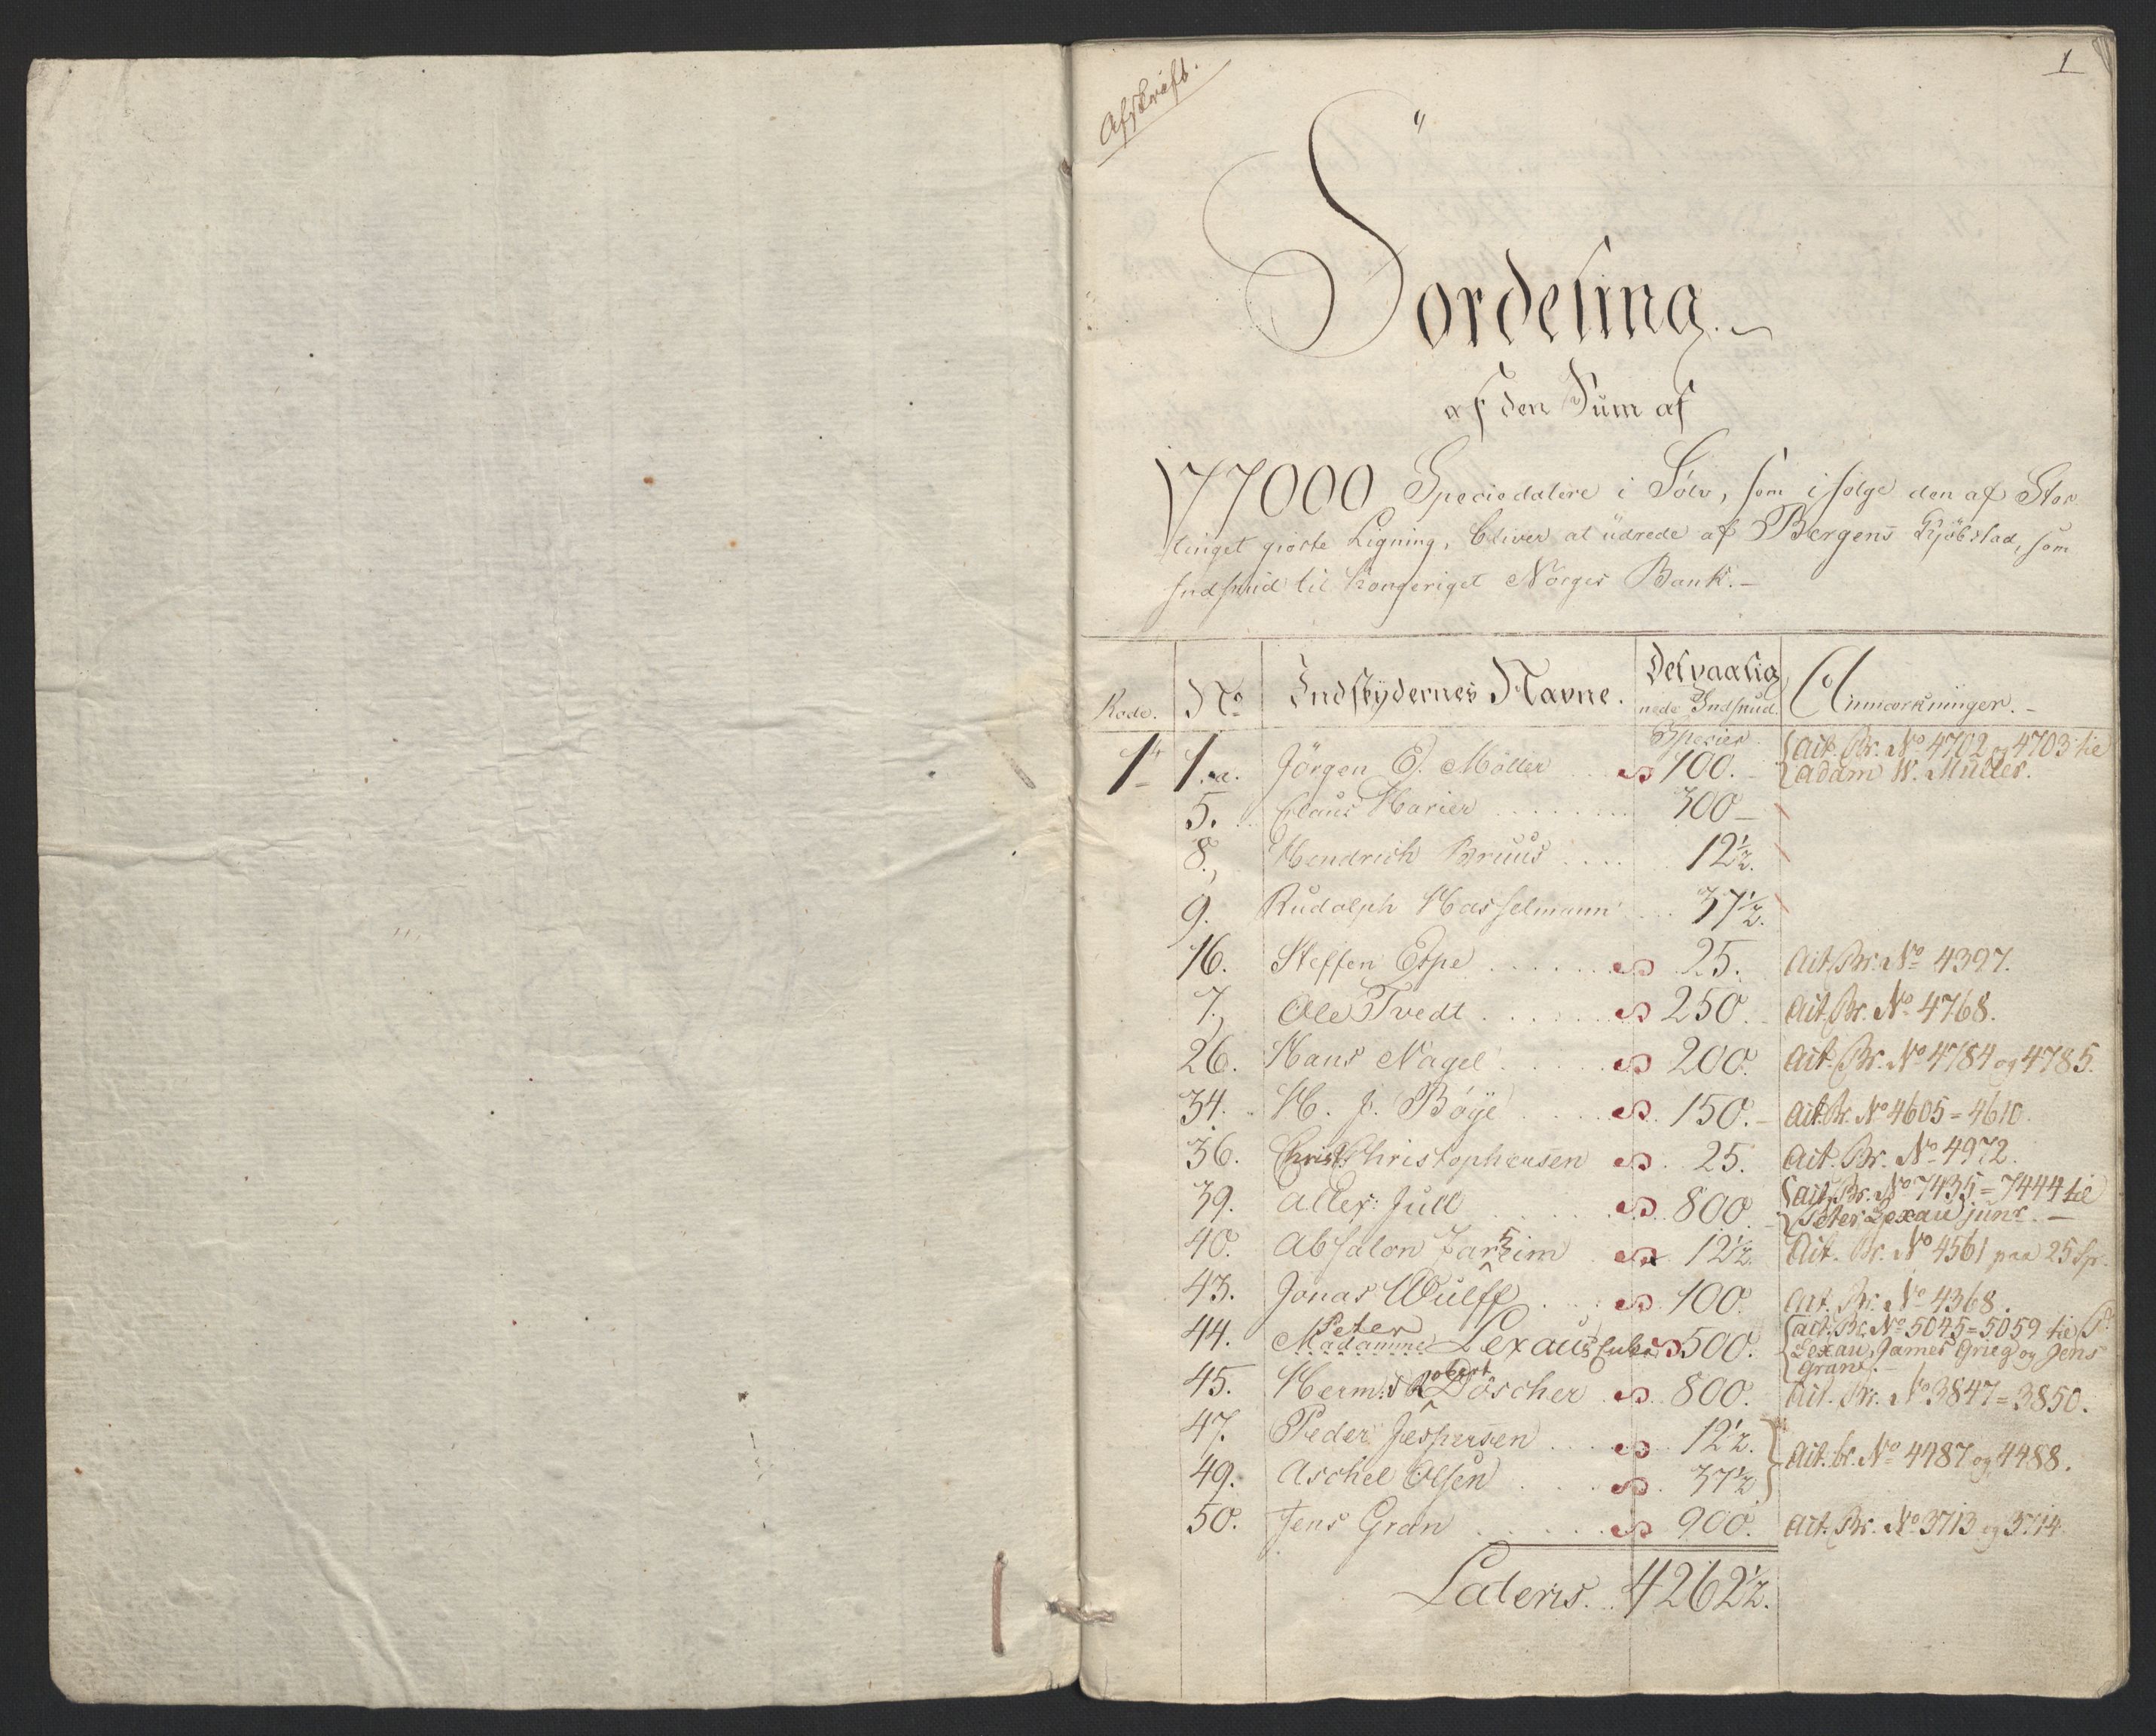 1
Afskrift.
Fordeling
af den Sum af
177000 Speciedalere i Sølv, som ifølge den af Stor
tinget giorte Ligning, bliver at udrede af Bergens Kjöbstad, som
Indskud til Kongeriget Norges Bank.-
Rode. No Indskydernes Navne. Det paalig
nede Indskud. Anmærkninger.-
Species
1ste 1.a. Jörgen E. Möller 100.- Act. Br. No 4702 og 4703 til
Adam W. Müller.
5. Claus 300-
8. Hendrich Bruus 12½.
9. Rudolph Hasselmann 37½.
16. Steffen Espe 25. Act. Br. No 4397.
7. Ole Tvedt 250.- Act. Br. No 4768.
26. Hans Nagel 200. Act. Br. No 4784 og 4785.
34. H. J. Böÿe 150.- Act. Br. No 4605=4610.
36. Christ. Christophensen 25. Act. Br. No 4972.
39. Aller: Jull 800.- Act. Br. No 7435=7444 til
Peter Lexau junr.-
40. Absalon 12½. Act. Br. No 4561 paa 25 Sp.
43. Jonas Wulff 100. Act. Br. No 4368.
Peter
44. Madamme Lexaus Enke 500. Act. Br. No 5045=5059 til P.
Lexau, James Grieg og Jens
Gran.
45. Herm: Döscher 800. Act. Br. No 3847=3850.
47. Peder Jespersen 12½.
49. Aschel Olsen 37½ Act. br. No 4487 og 4488.
50. Jens Gran 900. Act. Br. No 3713 og 3714
Lateris. 4262½.